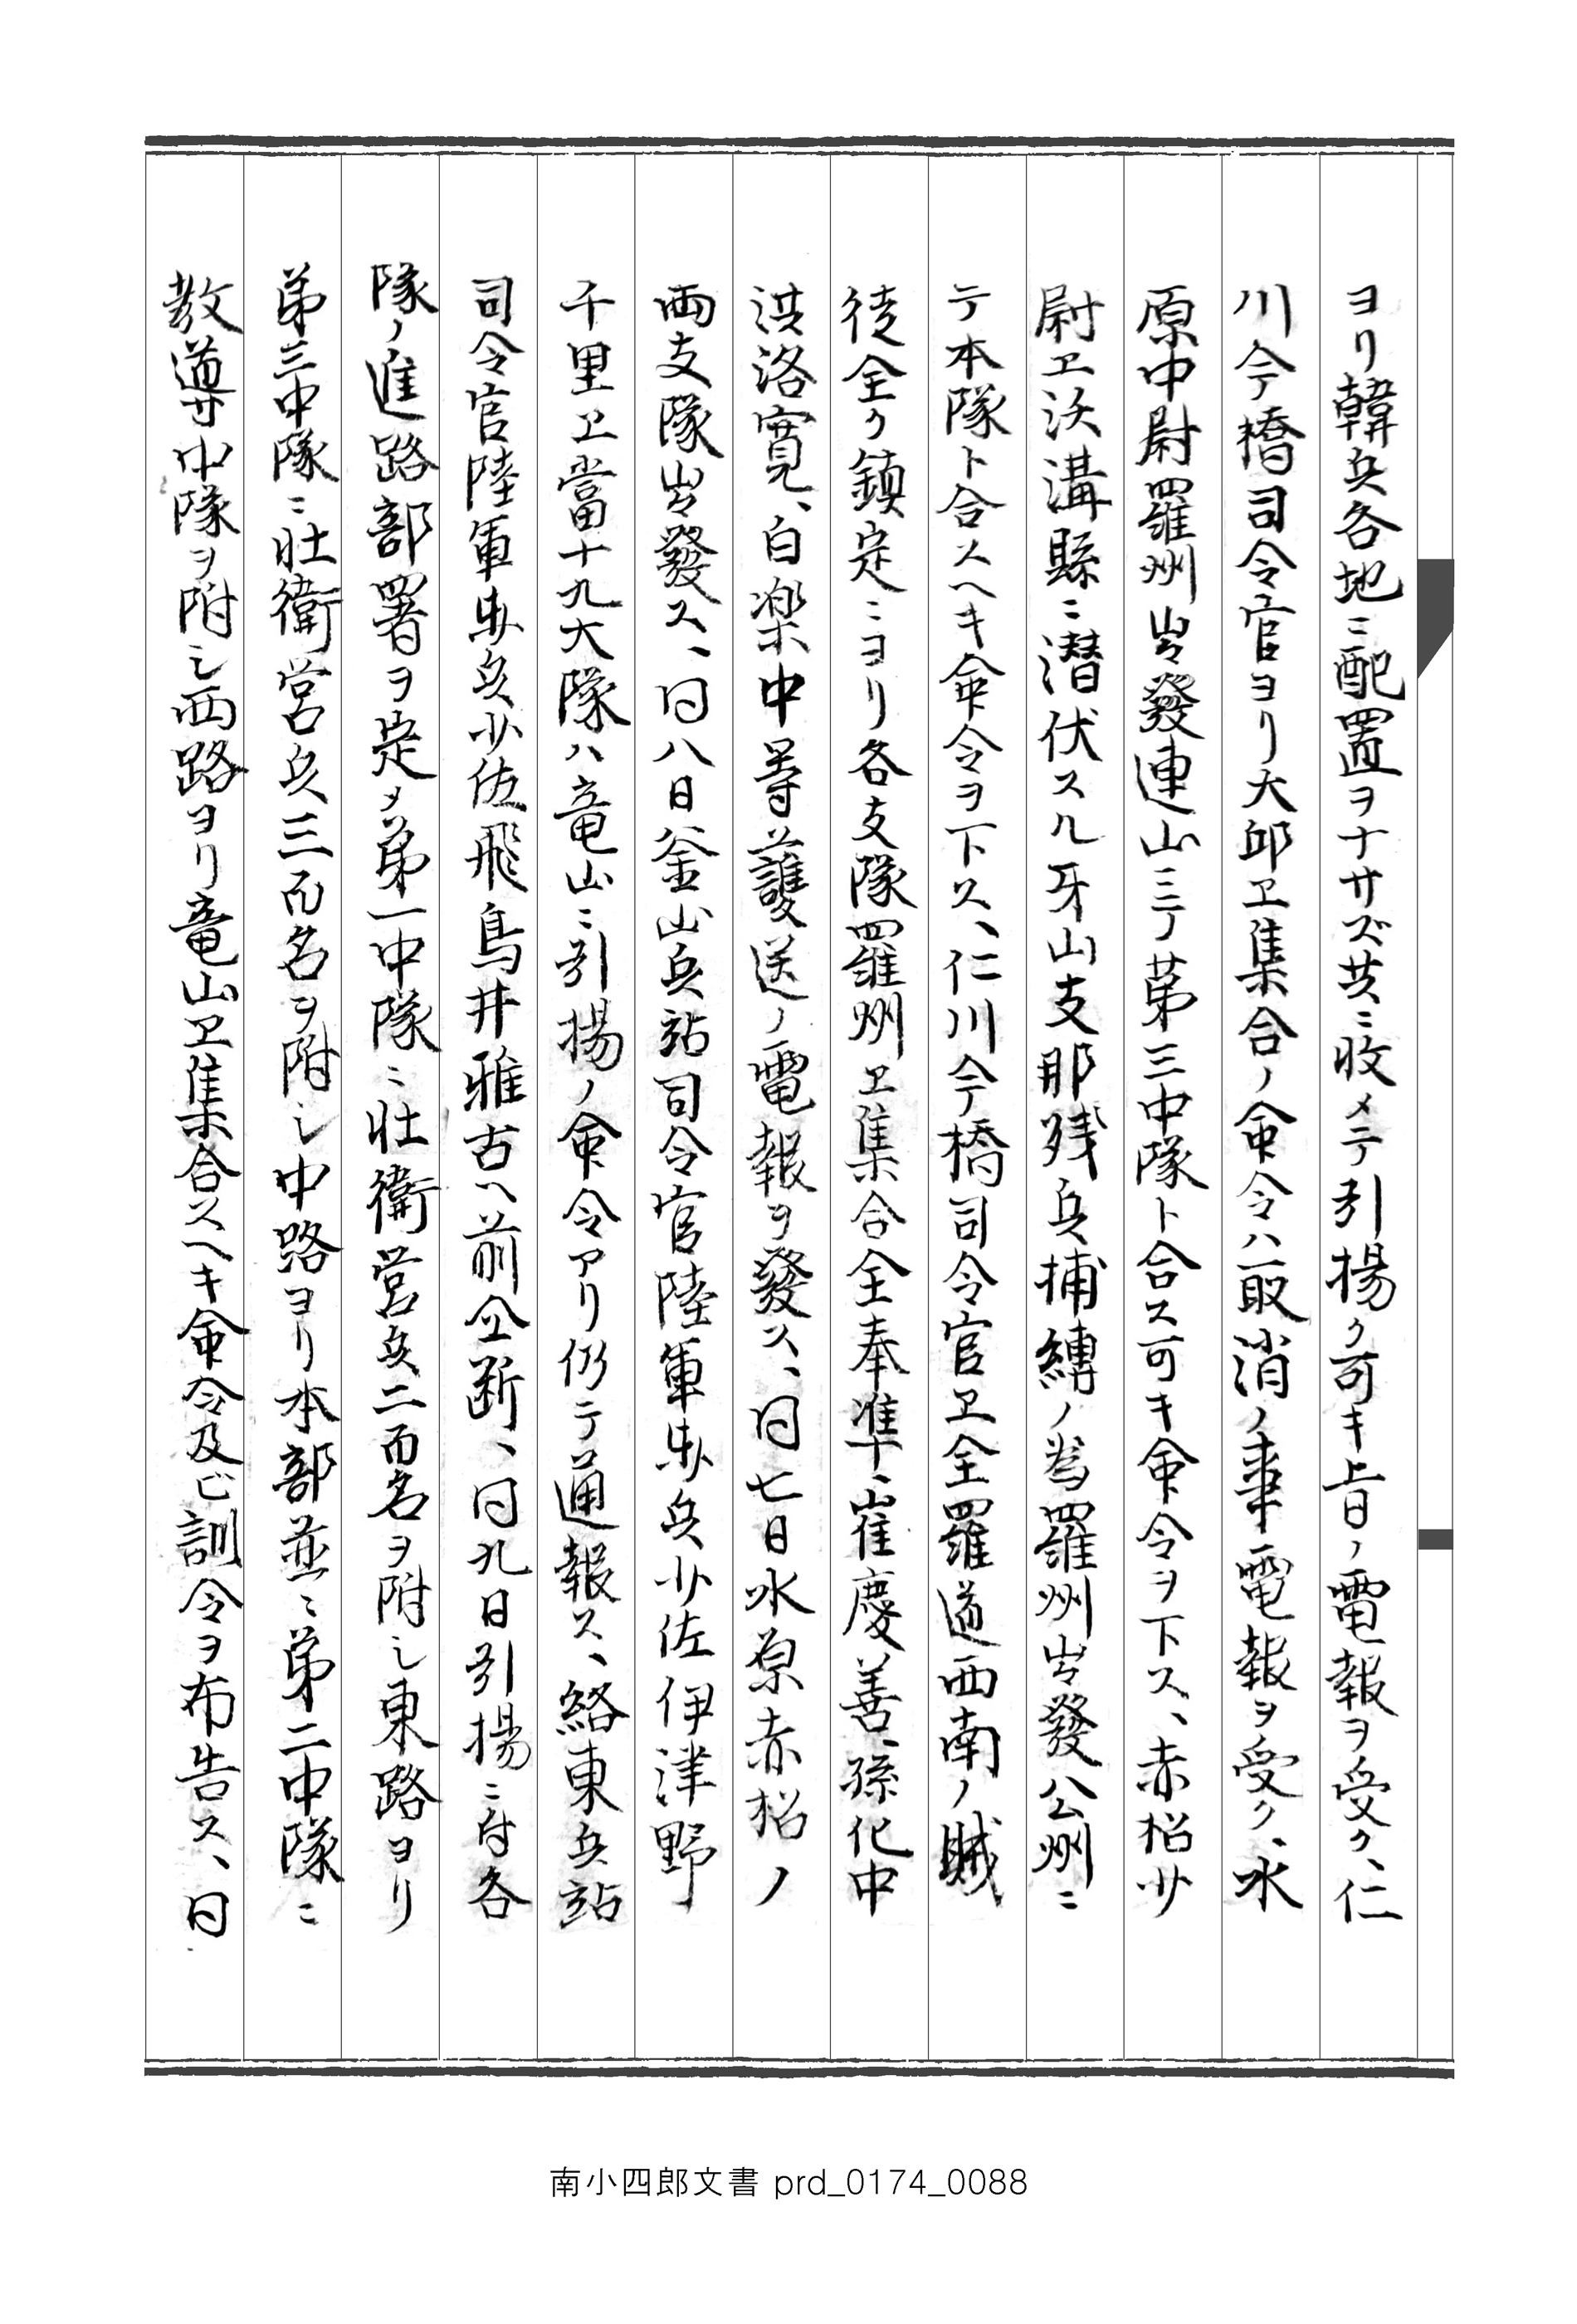 ヨリ韓兵各地ニ配置ヲナサズ共ニ收メテ引揚ク可キ旨ノ電報ヲ受ク、仁
川今橋司令官ヨリ大邱ヱ集合ノ命令ハ取消ノ事電報ヲ受ク、水
原中尉羅州出發連山ニテ第三中隊ト合ス可キ命令ヲ下ス、赤松少
尉ヱ沃溝縣ニ潜伏スル牙山支那残兵捕縛ノ為羅州出發公州ニ
テ本隊ト合スヘキ命令ヲ下ス、仁川今橋司令官ヱ全羅道西南ノ賊
徒全ク鎮定ニヨリ各支隊羅州ヱ集合全奉準、崔慶善、孫化中
洪洛寛、白楽中等護送ノ電報ヲ發ス、同七日水原赤松ノ
両支隊出發ス、同八日釜山兵站司令官陸軍歩兵少佐伊津野
千里ヱ當十九大隊ハ竜山ニ引揚ノ命令アリ仍テ通報ス、絡東兵站
司令官陸軍歩兵少佐飛鳥井雅古ヘ前仝断、同九日引揚ニ付各
隊ノ進路部署ヲ定メ第一中隊ニ壮衛営兵二百名ヲ附シ東路ヨリ
第三中隊ニ壮衛営兵三百名ヲ附シ中路ヨリ本部並ニ第二中隊ニ
教導中隊ヲ附シ西路ヨリ竜山ヱ集合スヘキ命令及ビ訓令ヲ布告ス、同
南小四郎文書 prd_0174_0088